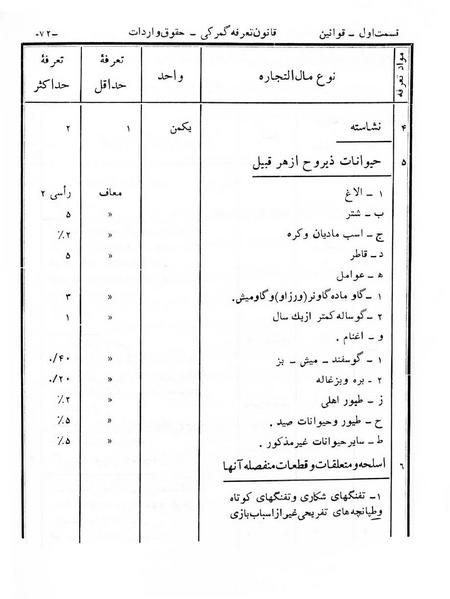 قسمت اول ـ قوانین قانون تعرفه گمرکی ـ حقوق واردات ـ۷۲ـ
مواد تعرفه نوع مال‌التجاره واحد تعرفهٔ حداقل تعرفهٔ حداکثر
۴ نشاسته یکمن ۱ ۲
۵ حیوانات ذیروح از هر قبیل
۱ ـ الاغ معاف رأسی ۲
ب ـ شتر « ۵
ج ـ اسب مادیان و کره « ۲٪
د ـ قاطر « ۵
ه ـ عوامل
۱ ـ گاو ماده گاونر (ورزاو) و گاومیش. « ۳
۲ ـ گوساله کمتر از یک سال « ۱
و ـ اغنام .
۱ ـ گوسفند ـ میش ـ بز « ۰/۴۰
۲ ـ بره و بزغاله « ۰/۲۰
ز ـ طیور اهلی « ۲٪
ح ـ طیور و حیوانات صید . « ۵٪
ط ـ سایر حیوانات غیر مذکور . « ۵٪
۶ اسلحه و متعلقات و قطعات منفصله آنها
۱ ـ تفنگهای شکاری و تفنگهای کوتاه
و طپانچه‌های تفریحی غیر از اسباب بازی